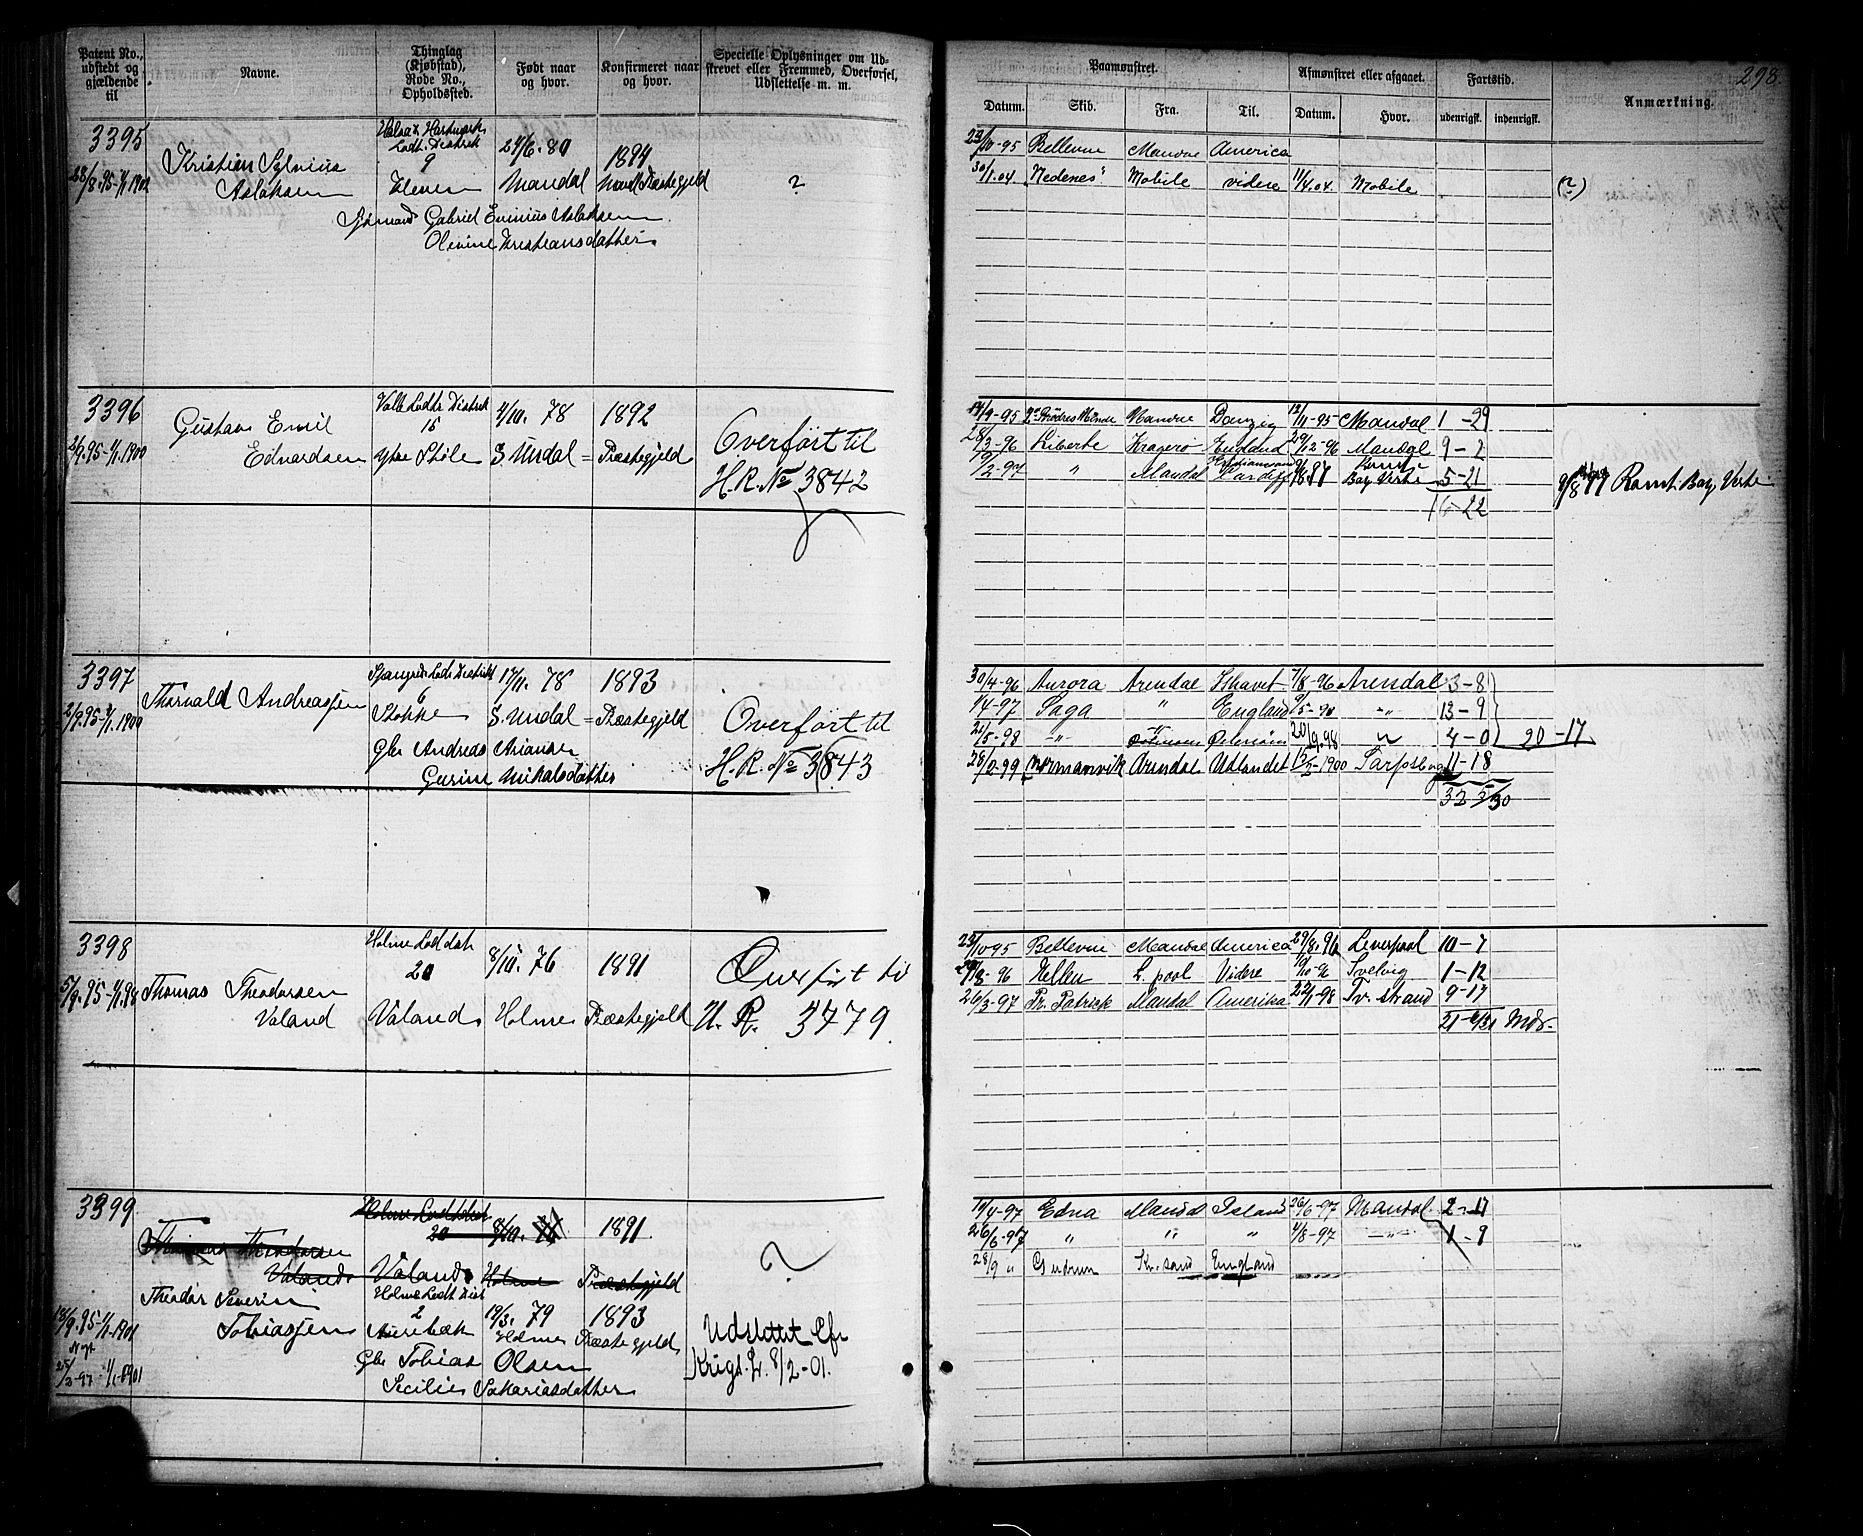 Patent No., udstedt og gjældende til
Navne.
Thinglag (Kjøbstad), Rode No., Opholdssted.
Født naar og hvor.
Konfirmeret naar og hvor.
Specielle Oplysninger om Udskrevet eller Fremmed, Overførsel, Udslettelse m. m.
Paamønstret.
Afmønstret eller afgaaet.
Fartstid.
Anmærkning.
298
Datum.
Skib.
Fra.
Til.
Datum.
Hvor.
udenrigsk.
indenrigsk.
3395
28/8.95-1/1 1902
Kristian Sylvius
Aslaksen
Lodts. Distrik
9
24/6. 80
Mandal
1894
Præstegjeld
?
Sjømand Gabriel Aslaksen
Olevine Kristiansdatter
23/10-95 Bellevue Mandal America
30/1.04 "Nedenes" Mobile videre 11/4.04 Mobile (?)
3396
2/9.95-1/1.1900
Gustav Emil
Edvardsen
Valle Lodts Distrik
15
Ytre Støle
4/10. 78
S. Undal =
1892
Præstegjeld
Overført til
H. R. No 3842
14/9-95 Mandal Danzig 12/11-95 Mandal 1-29
28/3-96 Liberte Kragerø England 29/12-96 Mandal 9-2
" Mandal Cardiff Bay Verte 5-21
16-22
Ramt. Bay Verte
3397
2/9.95-1/1.1900
Thorvald Andreassen
Spangr. Lods Distrikt
6
Stokke
17/11. 78
S. Undal =
1893
Præstegjeld
Overført til
H. R. No 3843
Gbr Andreas Ariansen
Gurine Mikalsdatter
30/4-96 Aurora Arendal Ishavet 7/8-96 Arendal 3-8
1/4-97 Saga " England -"- 13-9
21/5-98 -"- 20/9.98 " 4-0 20-17
28/2-99 Normanvik Arendal Udlandet 15/2-1900 Sarpsborg 11-18
3398
5/9.95-1/1.98
Thomas Theodorsen
Valand
Holme Lod dsk
20
Valand
8/10. 76
Holme
1891
Præstegjeld
Overført til
H. R. 3479.
23/10-95 Bellevue Mandal America 29/8.96 Liverpool 10-7
29/8-96 Ellen L. pool Videre 10/10-96 Svelvig 1-12
26/3-97 Pr. Patrick Mandal Amerika 22/1-98 Tv.strand 9-17
3399
Thomas Theodorsen
Valand
Holme Lodtsdist
20
Valand
8/10. 76
Holme
1891
Præstegjeld
?
Theodor Severin
Tobiassen
18/9.95-1/1.1901
Nyt
25/2-97 1/1-1901
Holme Lodt Dist
2
19/3. 79
Holme
1893
Præstegjeld
Gbr Tobias Olsen
Secilie Sakariasdatter
Udslettet Efr
Krigs.
8/2-01.
14/4-97 Edna Mandal Island 26/6-97 Mandal 2-11
26/6-97 " " " 4/8-97 -"- 1-9
28/9 " Gudrun Kr.sand England